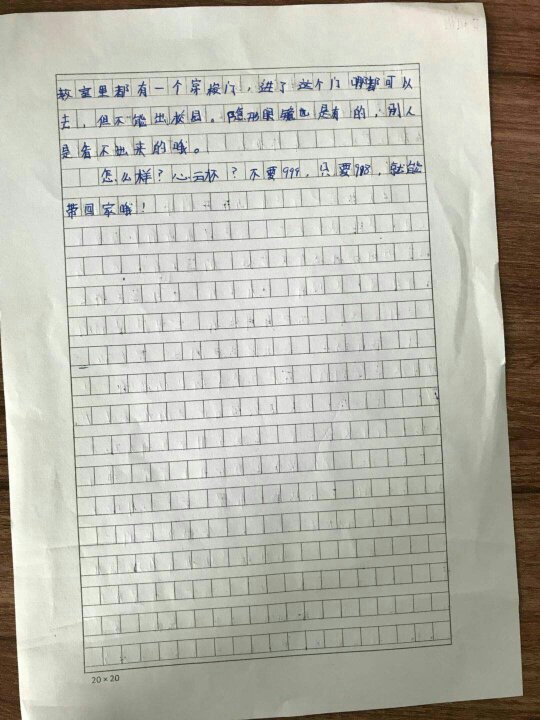 教室里都有一个穿梭门，进了这个门哪都可以
去，但不能出校园。隐形眼镜也是有的，别人
是看不出来的哦。
怎么样？心动不？不要999，只要988，就能
带回家哦！
20×20